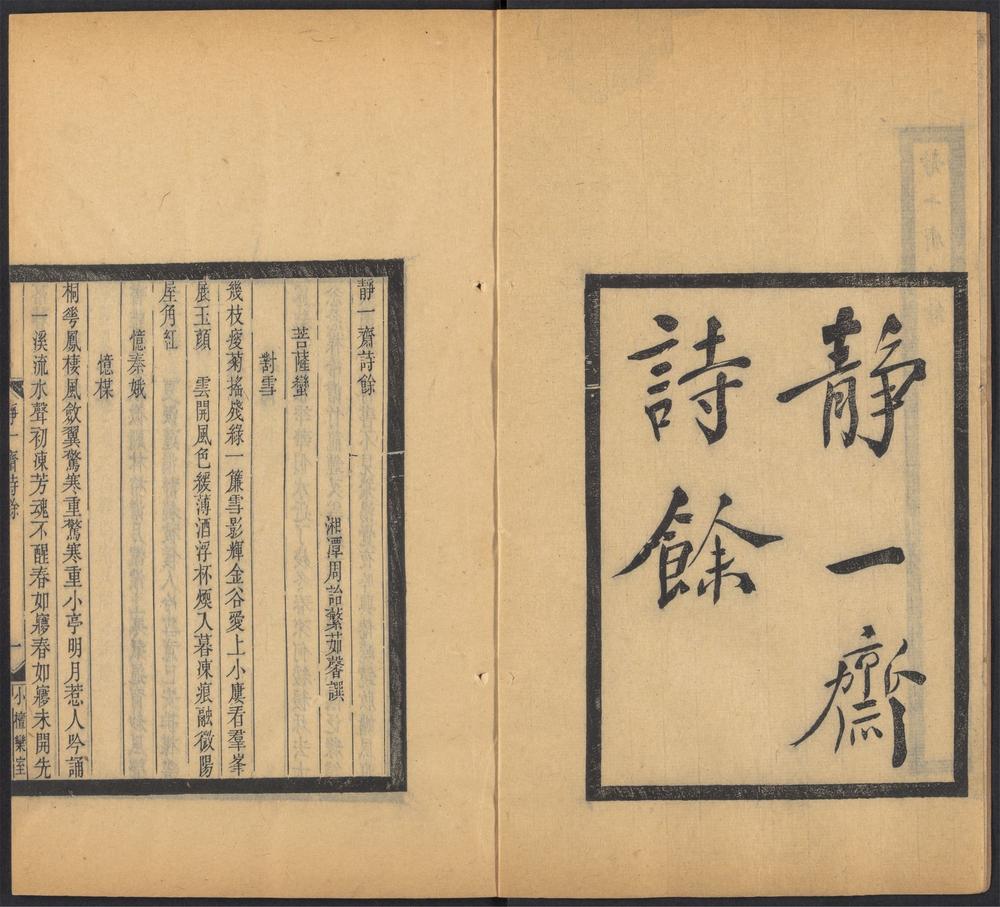 靜一齋
詩餘
靜一齋詩餘
湘潭周詒蘩茹馨譔
菩薩蠻
對雪
幾枝瘦菊搖殘綠一簾雪影輝金谷愛上小廔看羣峯
展玉顏　雲開風色緩薄酒浮杯煗入暮凍痕融微陽
屋角紅
憶秦娥
憶楳
桐雩鳳棲風斂翼驚寒重驚寒重小亭明月惹人吟誦
一溪流水聲初凍芳魂不醒春如㝱春如㝱未開先
靜一齋詩餘
一
小檀欒室